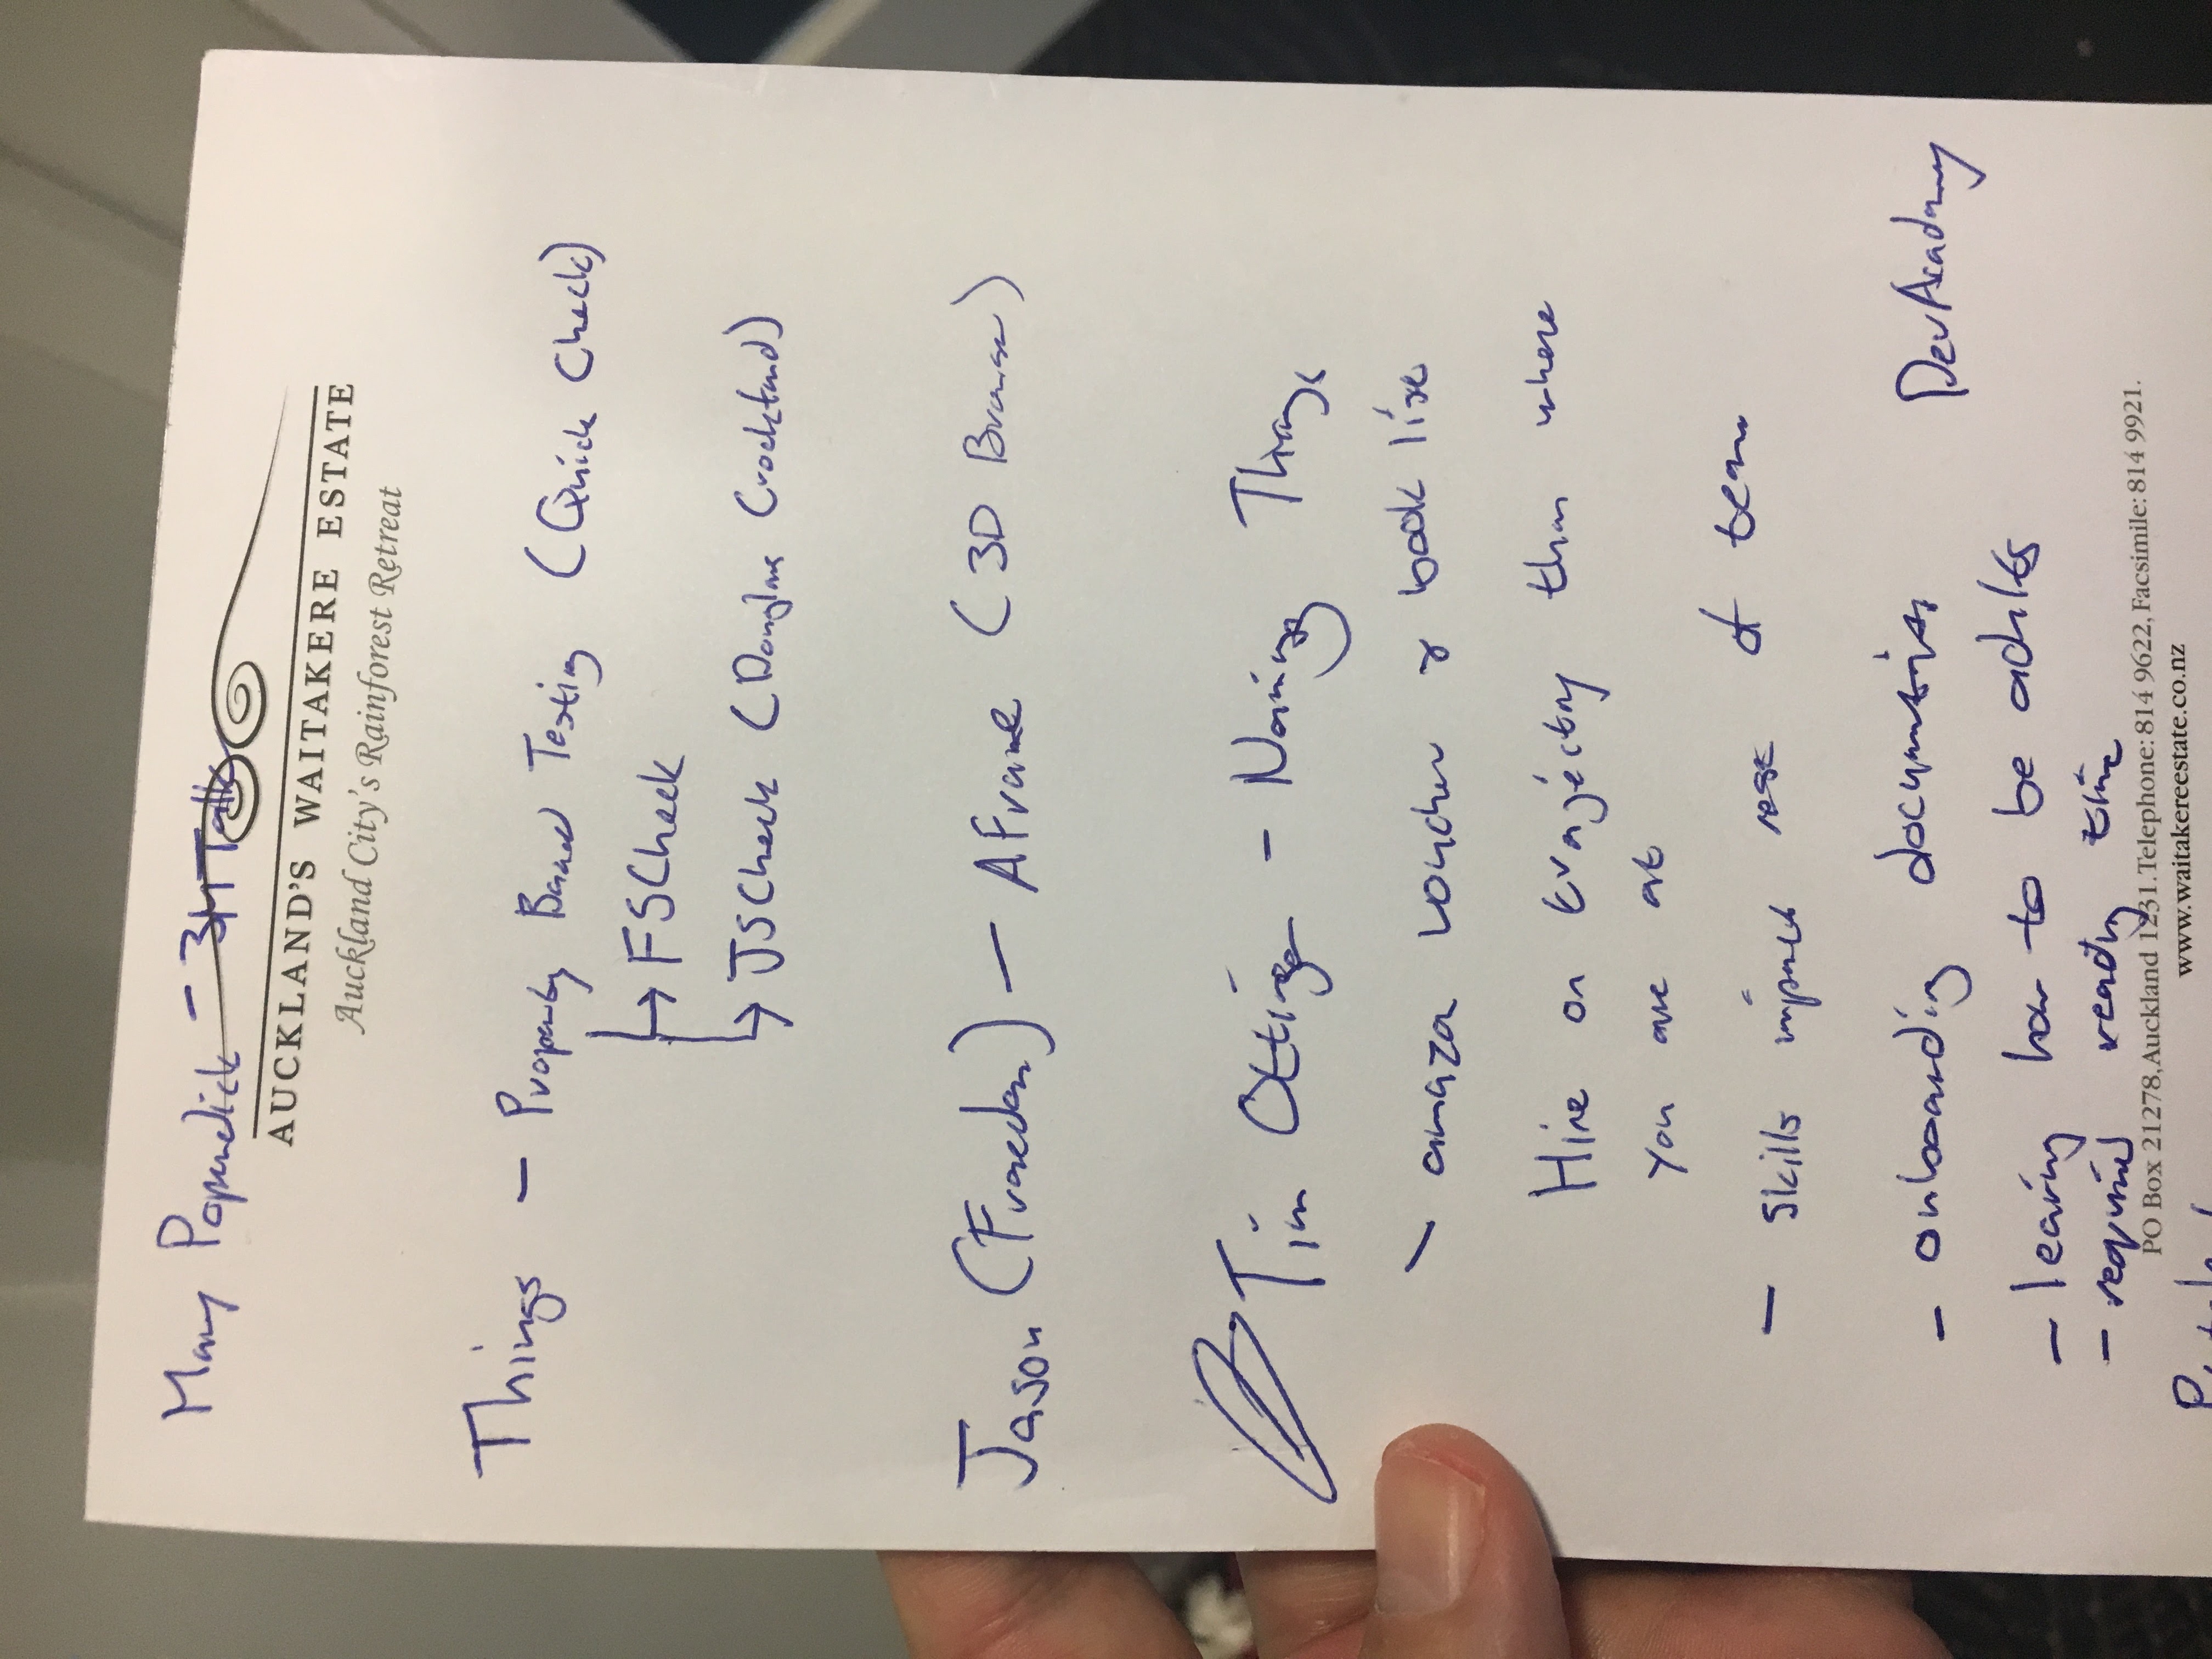 Mary Popendick - 3M Talk
AUCKLAND'S WAITAKERE ESTATE
Auckland City's Rainforest Retreat
Things - Property Based Testing (Quick Check)
FSCheck
JSCheck (Douglas Crockford)
Jason ( ) - AFrame (3D Browser)
Tim Ottinger - Naming Things
- amazon voucher & book list
Hire on trajectory than where
you are at
- skills impact rest of team
- onboarding
DevAcademy
- learing how to be adults
- required reading time
PO Box 21278, Auckland 1231. Telephone: 814 9622, Facsimile: 814 9921.
www.waitakereestate.co.nz